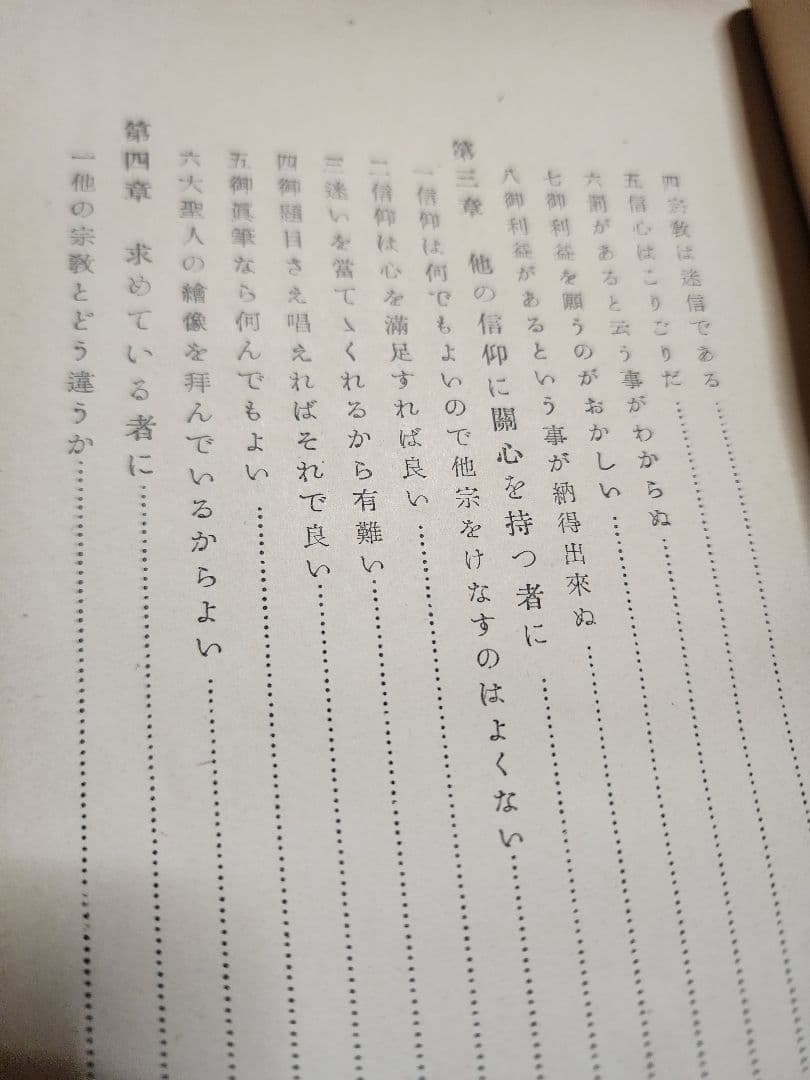 四宗教は迷信である
五信心はこりごりだ
六罰があると云う事がわからぬ
七御利益を願うのがおかしい
八御利益があるという事が納得出來ぬ
第三章 他の信仰に關心を持つ者に
一信仰は何でもよいので他宗をけなすのはよくない
二信仰は心を滿足すれば良い
三迷いを當てゝくれるから有難い
四御題目さえ唱えればそれで良い
五御眞筆なら何んでもよい
六大聖人の繪像を拜んでいるからよい
第四章 求めている者に
一他の宗教とどう違うか